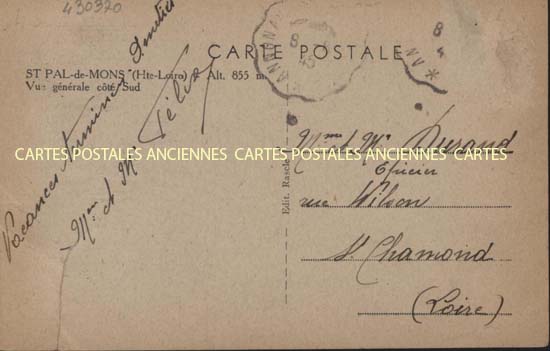 430320
CARTE POSTALE
ST PAL-de-MONS (Hte-Loire) Alt. 855 m.
Vue générale côté Sud
Vacances
Mme et Mr
Edit. Rascle
CARTES POSTALES ANCIENNES CARTES POSTALES ANCIENNES CARTES
Mme et Mr Durand
rue Wilson
St Chamond
(Loire)
ANNONA
8
8
4
AN